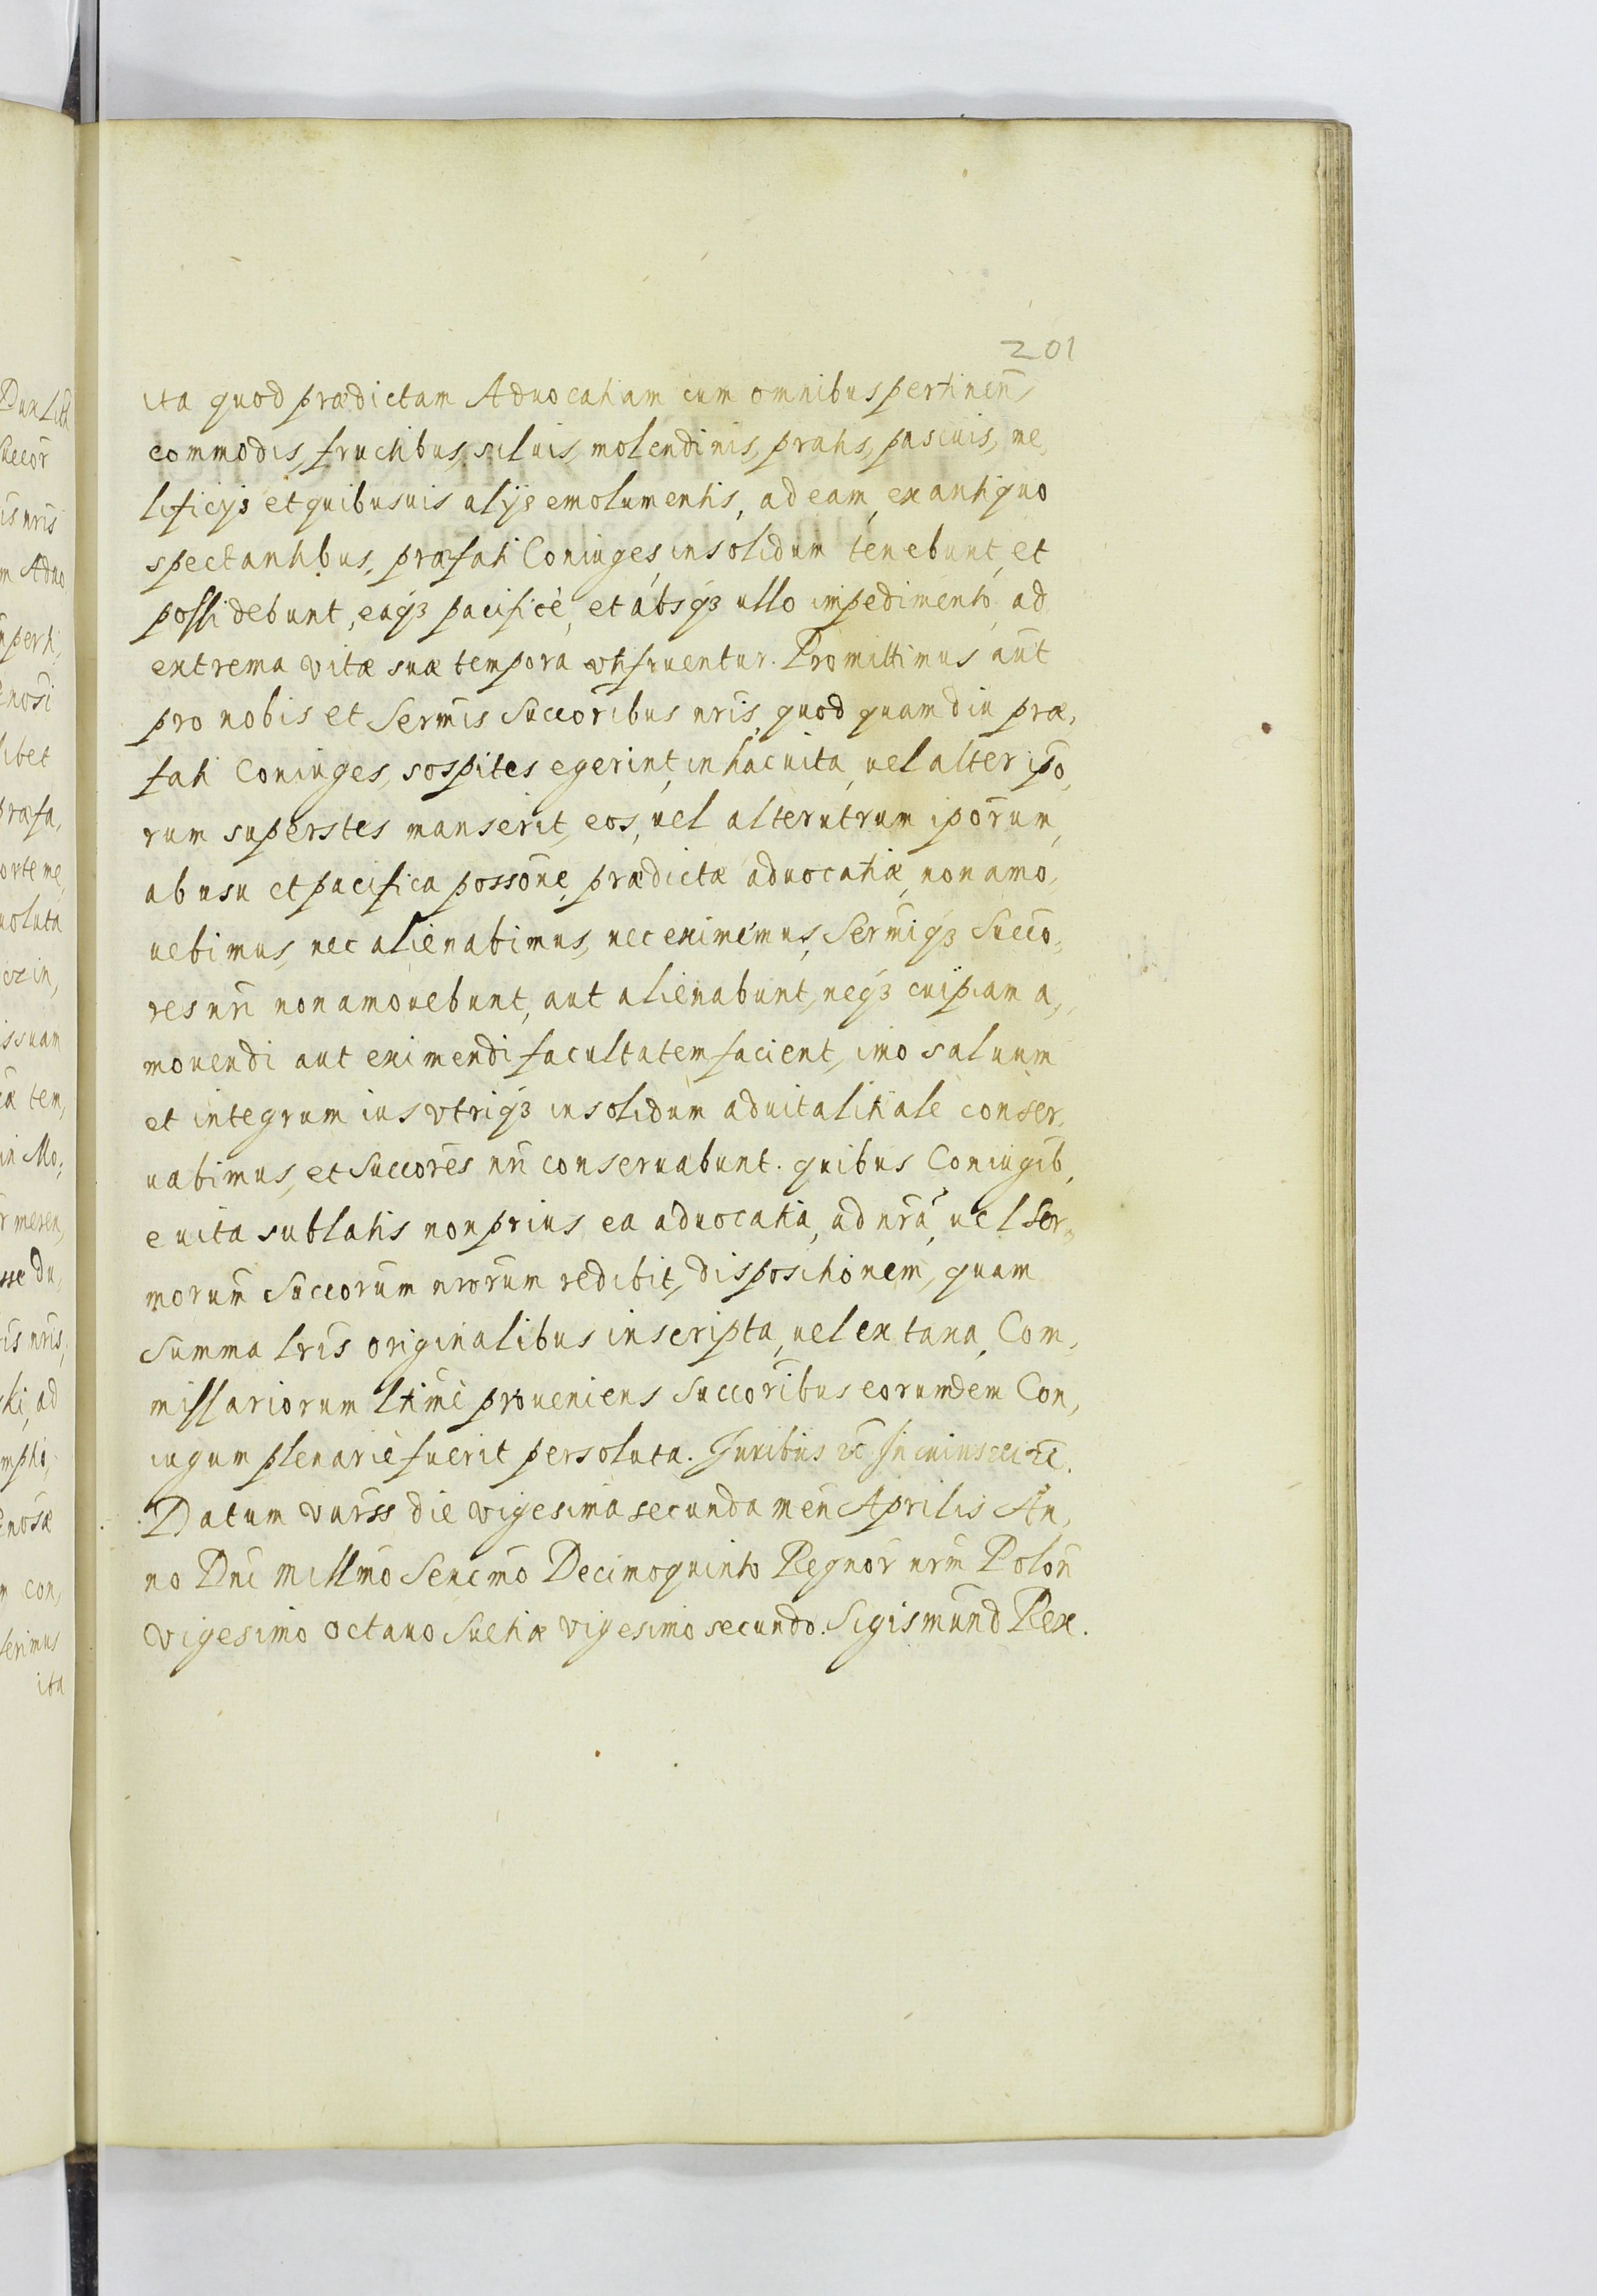 201
ita quod prædictam Aduocatiam cum omnibus pertinen̄
commodis, fructibus, siluis, molendinis, pratis, pascuis, me,
lificijs et quibusuis alijs emolumentis, ad eam, ex antiquo
spectantibus, præfati Coniuges, in solidum tenebunt, et
possidebunt, eaqꝫ pacificè, et absqꝫ ullo impedimento, ad
extrema vitæ suæ tempora vtifruentur. Promittimus aūt
pro nobis et Sermis Succoribus nris, quod quamdiu præ,
fati Coniuges, sospites egerint, in hac uita, uel alter ipo,
rum superstes manserit, eos, uel alterutrum iporum,
ab usu et pacifica possone, prædictæ aduocatiæ, non amo,
uebimus, nec alienabimus, nec eximemus, Sermiqꝫ Succo,
res nri non amouebunt, aut alienabunt, neqꝫ cuipiam a,
mouendi aut eximendi facultatem facient, imo saluum
et integrum ius vtriqꝫ in solidum aduitalitiale conser,
uabimus, et Succores nri conseruabunt. quibus Coniugib,
e uita sublatis non prius ea aduocatia, ad nrā, uel Ser,
morum Succorum nrorum redibit, dispositionem, quam
Summa lris originalibus inscripta, uel ex taxa, Com,
missariorum ltimè proueniens Succoribus eorumdem Con,
iugum plenariè fuerit persoluta. Juribus etc In cuius rei etc.
Datum varss die vigesima secunda men Aprilis An,
no Dni Millmo Sexcmo Decimoquinto Regnor nrm Polon
vigesimo octauo Suetiæ vigesimo secundo. Sigismund Rex.